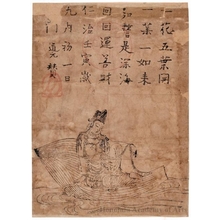 一花五葉開
一葉一如来
知誓是深海
回回運善財
仁治壬寅歳
九月初一日
道元